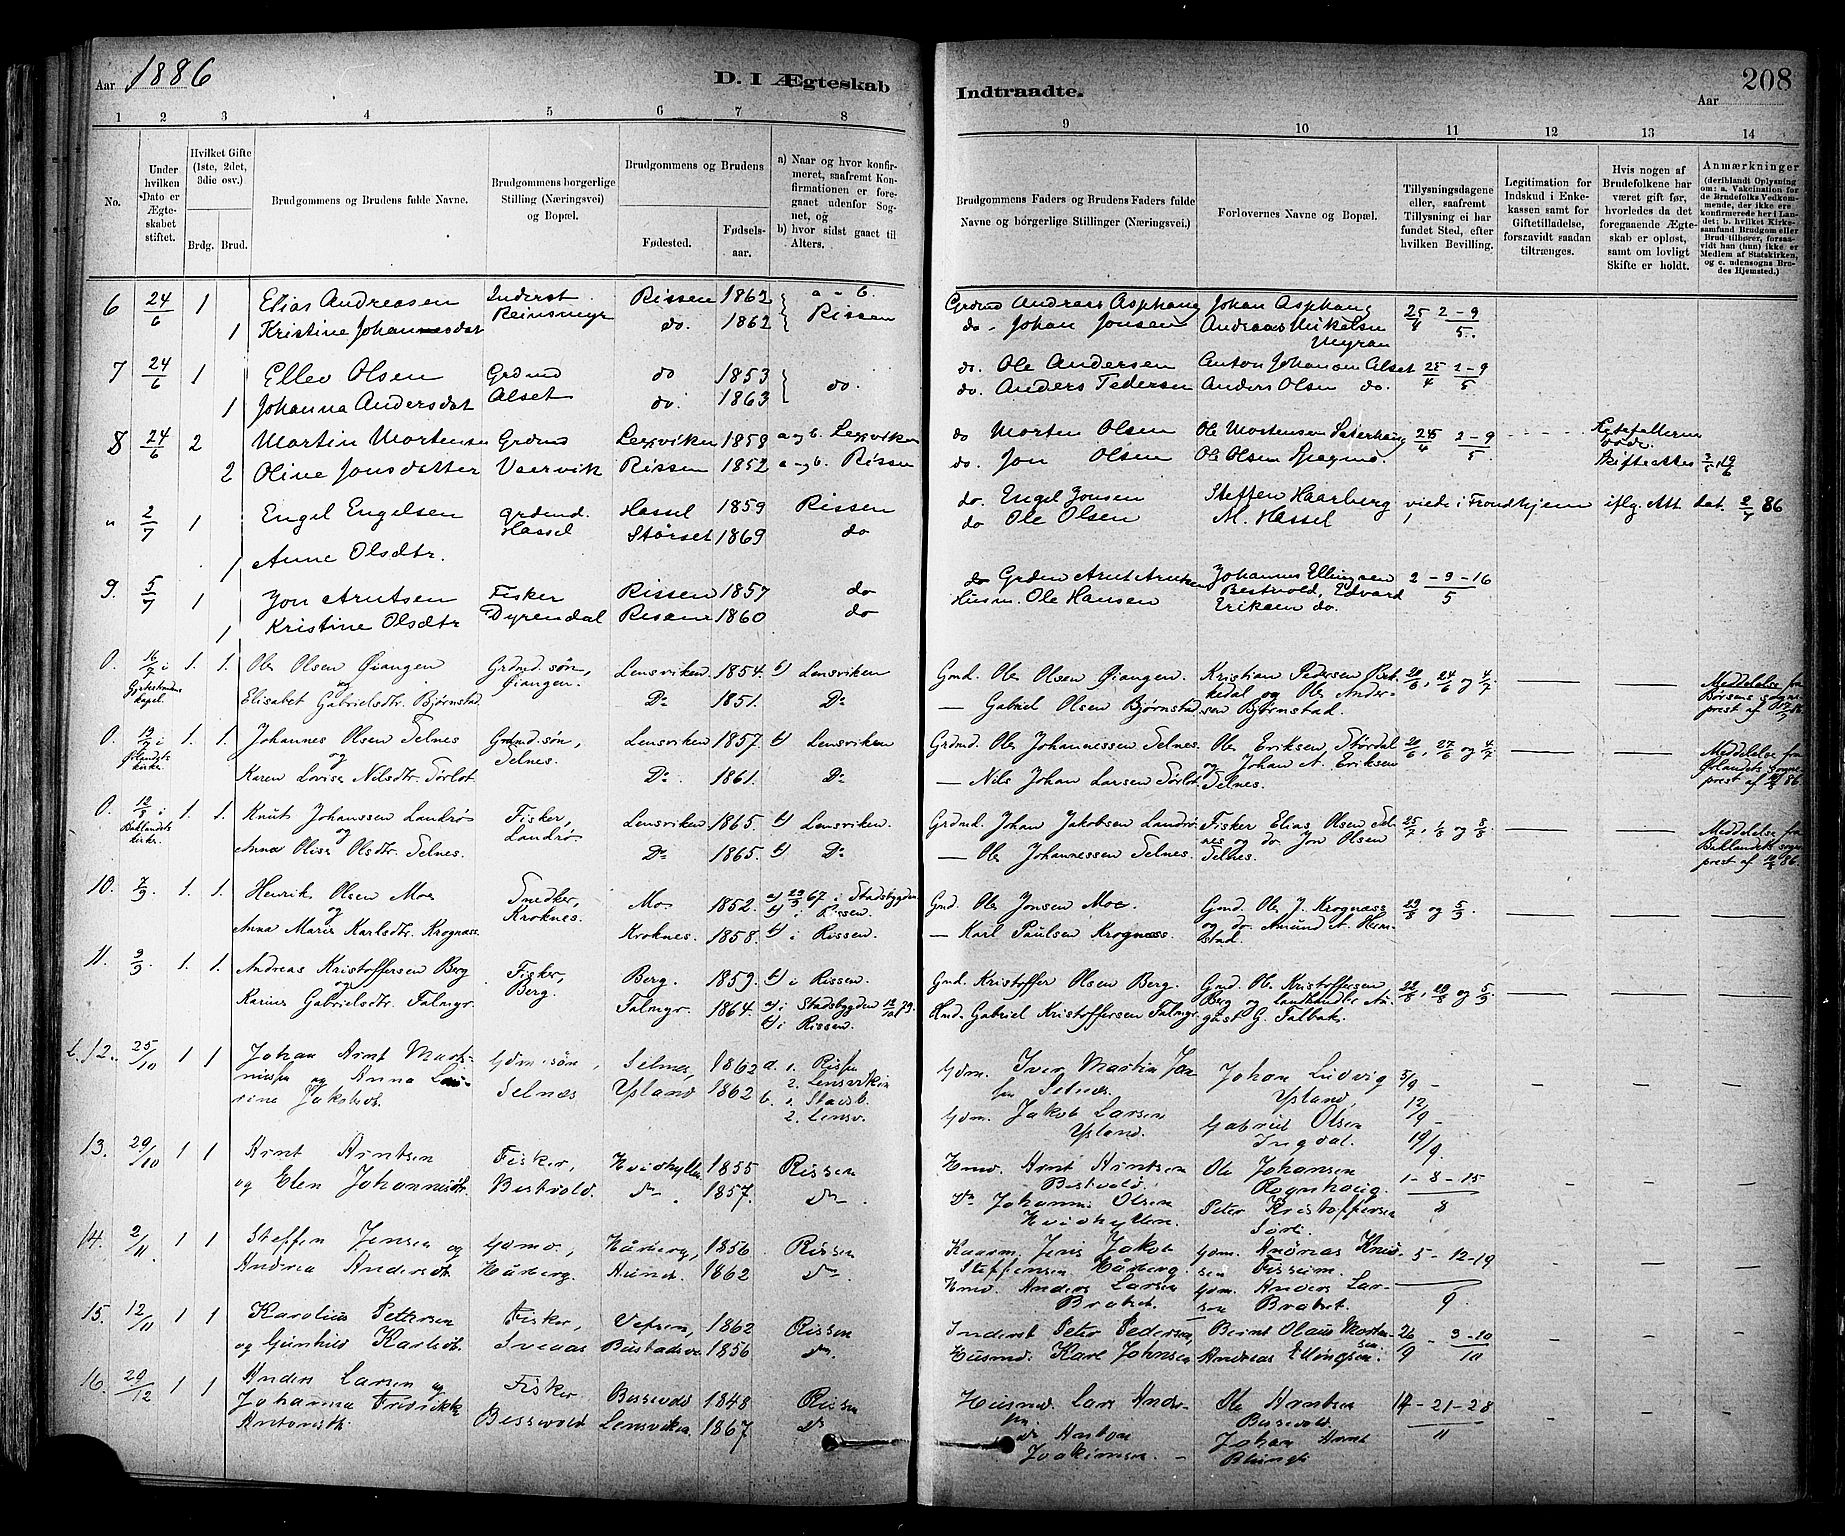 Aar 1886
D. I Ægteskab
Indtraadte.
Aar
208
1 2 3 4 5 6 7 8 9 10 11 12 13 14
No.
Under hvilken Dato er Ægteskabet stiftet.
Hvilket Gifte (1ste, 2det, 3die osv.)
Brdg. Brud.
Brudgommens og Brudens fulde Navne.
Brudgommens borgerlige Stilling (Næringsvei) og Bopæl.
Brudgommens og Brudens
Fødested.
Fødselsaar.
a) Naar og hvor konfirmeret, saafremt Konfirmationen er foregaaet udenfor Sognet, og
b) hvor sidst gaaet til Alters.
Brudgommens Faders og Brudens Faders fulde Navne og borgerlige Stillinger (Næringsvei.)
Forlovernes Navne og Bopæl.
Tillysningsdagene eller, saafremt Tillysning ei har fundet Sted, efter hvilken Bevilling.
Legitimation for Indskud i Enkekassen samt for Giftetilladelse, forsaavidt saadan tiltrænges.
Hvis nogen af Brudefolkene har været gift før, hvorledes da det foregaaende Ægteskab er opløst, samt om lovligt Skifte er holdt.
Anmærkninger (deriblandt Oplysning om: a. Vakcination for de Brudefolks Vedkommende, der ikke ere konfirmerede her i Landet; b. hvilket Kirkesamfund Brudgom eller Brud tilhører, forsaavidt han (hun) ikke er Medlem af Statskirken, og c. udensogns Brudes Hjemsted.)
6 24/6 1 Elias Andreasen Inderst Rissen 1862 a - b. Grdmd Andreas Asphaug Johan Asphaug 25/4 2 - 9/5
1 Kristine Johannesdat Reinsmyr do. 1862 Rissen do. Johan Jonsen Andreas Mikelsen Myran
7 24/6 1 Ellev Olsen Grdmd do 1853 do. do. Ole Andersen Anton Johansen Alset 25/4 2 - 9/5
1 Johanna Andersdat Alset do. 1863 do. Anders Pedersen Anders Olsen do.
8 24/6 2 Martin Mortensen Grdmd Lexviken 1858 a og b. Lexviken do Morten Olsen Ole Mortensen 25/4 2 - 9/5
2 Oline Jonsdatter Vaarvik Rissen 1852 a og b. Rissen do. Jon Olsen Ole Olsen
" 2/7 1 Engel Engelsen grdmd. Hassel 1859 Rissen do. Engel Jonsen Steffen Haarberg viede i Trondhjem iflg. Att. dat. 2/7 86
1 Anne Olsdtr. Hassel Størset 1869 do do Ole Olsen M. Hassel
9. 5/7 1 Jon Arntsen Fisker Rissen 1857 do Grdm Arnt Arntsen Johannes Ellingsen 2 - 9 - 16/5
1 Kristine Olsdtr Dyrendal Rissen 1860 do Husm. Ole Hansen Bestvold, Edvard Eriksen do.
0. 16/7 i kapel. 1. 1. Ole Olsen Øiangen Grdmd. søn, Lensviken 1854. b) Lensviken Gmd. Ole Olsen Øiangen. Kristian Pedersen 20/6, 24/6 og 4/7
og Elisabet Gabrielsdtr. Bjørnstad Øiangen. Do 1851. Do — Gabriel Olsen Bjørnstad og Ole Andersen Bjørnstad. Meddelelse fra Børsens sogneprest af
0. i Ørlandets kirke. 1. 1. Johannes Olsen Selnes Grdmd. søn, Lensviken 1857. b) Lensviken Grdmd. Ole Johannessen Selnes. Ole Eriksen, Størdal 20/6, 27/6 og 4/7
og Karen Lovise Nilsdtr. Sørlot Selnes. Do. 1861. Do — Nils Johan Larsen Sørlot. og Johan A. Eriksen Selnes. Meddelelse fra Ørlandets sogneprest af 86.
0. 12/8 i Baklandets kirke. 1. 1. Knut Johanssen Landrø Fisker, Lensviken 1865. b) Lensviken. Grdmd. Johan Jakobsen Landrø. Fisker Elias Olsen Selnes 25/7, 1/8 og 8/8
og Anna Olise Olsdtr. Selnes. Landrø Do 1865. b) Do — Ole Johannessen Selnes. og do. Jon Olsen Selnes. Meddelelse fra Baklandets sogneprest af 86.
10. 7/9 1. 1. Henrik Olsen Moe Snedker, Mo 1852. a) 67 i Stadsbygden b) i Rissen. Gmd. Ole Jonsen Moe. Gmd. Ole J. Krognæss 29/8 og 5/9
og Anna Marie Karlsdtr. Krognæss Kroknes. Kroknes. 1858. b) i Rissen. — Karl Paulsen Krognæss. og do. Amund A. Hemstad.
11. 9/9. 1. 1. Andreas Kristoffersen Berg Fisker, Berg. 1859. b) i Rissen. Gmd. Kristoffer Olsen Berg. Gmd. Ole Kristoffersen 22/8, 29/8 og 5/9
og Karine Gabrielsdtr. Falmyr. Berg. Falmyr. 1864. a) i Stadsbygden 79. b) i Rissen. Hmd. Gabriel Kristoffersen Falmyr. Berg og landhandler August G. Falbak.
12. 25/10 1 1 Johan Arnt Martinussen og Anna Laurine Jakobsdt. Gdm. søn, Selnæs Selnes, Ysland 1862 1862 a. 1. Rissen 2. Lensviken b. 1. Stadsb. 2. Lensv. Gdm. Iver Martin Jansen Selnæs Gdm. Jakob Larsen Ysland. Johan Ludvig Ysland, Gabriel Olsen Ingdal. 5/9 - 12/9 - 19/9
13. 29/10 1 1 Arnt Arntsen Fisker, Hvidhyllen 1855 Rissen Hmd. Arnt Arntsen Bestvold. Ole Johansen Rognshaug. 1 - 8 - 15/8
og Elen Johannesdt. Bestvold. do. 1857. do. do Johannes Olsen Hvidhyllen. Peter Kristoffersen Sørli.
14. 2/11 1 1 Steffen Jensen og Gdmd, Hårberg, 1856 Rissen Kaarm. Jens Jakob Steffensen Hårberg. Gdm. Andreas Knudsen Fisseim. 5 - 12 - 19/9
Andrea Andersdt. Hårberg. 1862 do. Hmd. Anders Larsen Bratset. Gdm. Anders Larsen Bratset.
15. 12/11 1 1 Karolius Pettersen Fisker, Vefsen, 1862 Rissen Inderst Peter Pedersen, Bernt Olaus Mortensen 26/9 - 3 - 10/10
og Gunhild Karlsdt. Sveaas 1856 do Husmd. Karl Johnsen Andreas Ellingsen.
16. 29/12 1 1 Anders Larsen og Johanna Fredrikke Antonsdt. Fisker Bessevold Bessevold Lensviken 1848 1867 Rissen do Husmd Lars Andersen do Anton Joakimsen - Ole Arntsen Bessevold. Johan Arnt 14 - 21 - 28/11